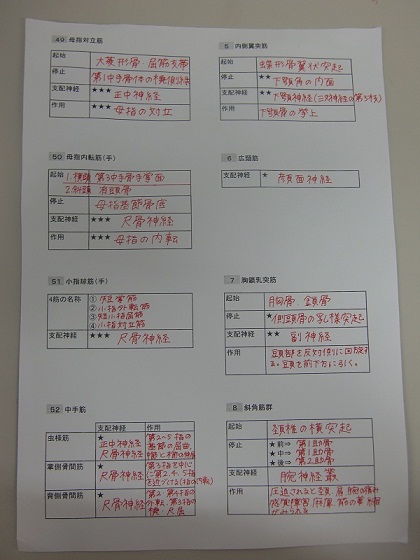 49 母指対立筋
起始 大菱形骨 屈筋支帯
停止 第1中手骨体の橈側縁
支配神経 ★★★ 正中神経
作用 ★★★ 母指の対立
50 母指内転筋(手)
起始 1.横頭 第3中手骨手掌面
2.斜頭 有頭骨
停止 母指基節骨底
支配神経 ★★★ 尺骨神経
作用 ★★★ 母指の内転
51 小指球筋(手)
4筋の名称 ① 短掌筋
② 小指外転筋
③ 短小指屈筋
④ 小指対立筋
支配神経 ★★★ 尺骨神経
52 中手筋
支配神経 作用
虫様筋 ★
正中神経
尺骨神経
第2~5指の
基節の屈曲
掌側骨間筋 ★
尺骨神経
第3指を中心
に第2、4、5指
を近づける(指の内転)
背側骨間筋 ★
尺骨神経
第2、第4指の
外転、第3指の
橈 尺屈
5 内側翼突筋
起始 蝶形骨翼状突起
停止 ★ 下顎角の内面
支配神経 ★★ 下顎神経(三叉神経の第3枝)
作用 下顎骨の挙上
6 広頚筋
支配神経 ★ 顔面神経
7 胸鎖乳突筋
起始 胸骨 鎖骨
停止 ★ 側頭骨の乳様突起
支配神経 ★★ 副神経
作用 頭部を反対側に回旋す
る。頭を前下方に引く。
8 斜角筋群
起始 頚椎の横突起
停止 ★前⇒ 第1肋骨
★中⇒ 第1肋骨
★後⇒ 第2肋骨
支配神経 腕神経叢
作用 圧迫されると頚 肩 腕の痛み
感覚障害 麻痺 筋の萎縮
がみられる